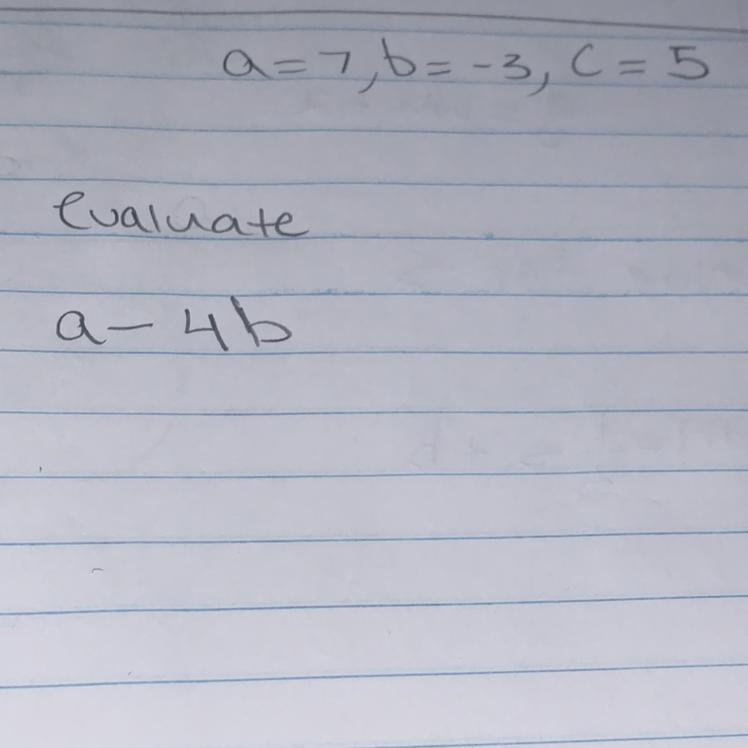 a = 7, b = -3, c = 5
evaluate
a - 4b